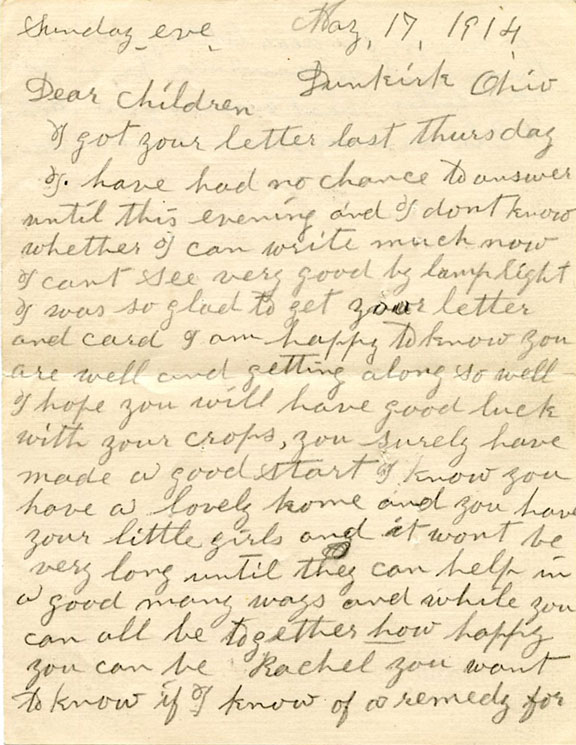 Sunday eve, May, 17, 1914
Dunkirk Ohio
Dear Children
I got your letter last thursday
I. have had no chance to answer
until this evening and I dont know
whether I can write much now
I cant see very good by lamplight
I was so glad to get your letter
and card I am happy to know you
are well and getting along so well
I hope you will have good luck
with your crops, you surely have
made a good start I know you
have a lovely home and you have
your little girls and it wont be
very long until they can help in
a good many ways and while you
can all be together how happy
you can be Rachel you want
to know if I know of a remedy for